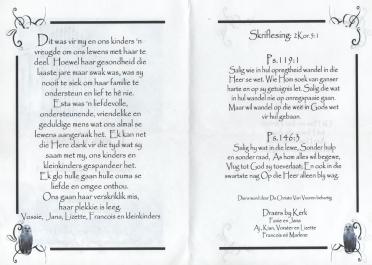 Dit was vir my en ons kinders 'n
vreugde om ons lewens met haar te
deel. Hoewel haar gesondheid die
laaste jare maar swak was, was sy
nooit te siek om haar familie te
ondersteun en lief te hê nie.
Esta was 'n liefdevolle,
ondersteunende, vriendelike en
geduldige mens wat ons almal se
lewens aangeraak het. Ek kan net
die Here dank vir die tyd wat sy
saam met my, ons kinders en
kleinkinders gespandeer het.
Ek glo hulle gaan hulle ouma se
liefde en omgee onthou.
Ons gaan haar verskriklik mis,
haar plekkie is leeg.
Vossie, Jana, Lizette, Francois en kleinkinders
Skriflesing: 2Kor.5:1
Ps.119:1
Salig wie in hul opregtheid wandel in die
Heer se wet. Wie Hom soek van ganser
harte en op sy getuignis let. Salig die wat
in hul wandel nie op ongeregte paaie gaan.
Maar wil wandel op die weë in Gods wet
vir hul gebaan.
Ps.146:3
Salig hy wat in die lewe, Sonder hulp
en sonder raad, As hom alles wil begewe,
Vlug tot God sy toeverlaat; En ook in die
swartste nag Op die Heer alleen bly wag.
Diens word deur Ds Christo Van Vuuren behartig
Draers by Kerk
Fanie en Jana
Aj, Kian, Vorster en Lizette
Francois en Marlene